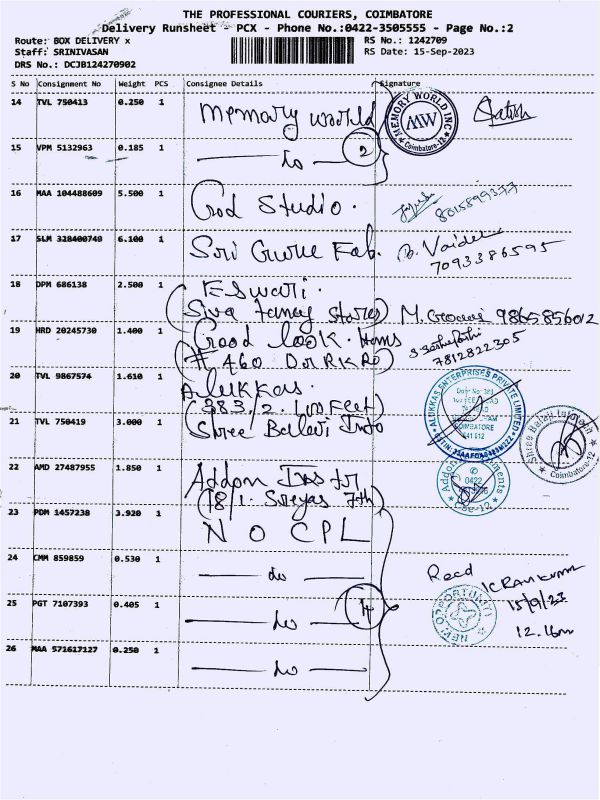 THE PROFESSIONAL COURIERS, COIMBATORE
Delivery Runsheet - PCX - Phone No.:0422-3505555 - Page No.:2
Route: BOX DELIVERY x
RS No.: 1242709
Staff: SRINIVASAN
RS Date: 15-Sep-2023
DRS No.: DCJB124270902
S No Consignment No Weight PCS Consignee Details Signature
14 TVL 750413 0.250 1 Memory world
MEMORY WORLD INC MW Coimbatore-12
15 VPM 5132963 0.185 1 do 2
16 MAA 104488609 5.500 1 God Studio.
8015899377
17 SLM 328400749 6.100 1 Sri Guru Fab.
7093386595
18 DPM 686138 2.500 1 Eswari.
(Siva fancy stores) 9865856012
19 HRD 20245730 1.400 1 Good look. Hems
(# 460 Dr RK Ro) 7812822305
20 TVL 9867574 1.610 1 Alukkas.
(383/2. 100 Feet)
ALUKKAS ENTERPRISES PRIVATE LIMITED
COIMBATORE
641 012
21 TVL 750419 3.000 1 Shree Balaji Info
Shree Balaji Infotech Coimbatore-12
22 AMD 27487955 1.850 1 Addon Instr
(18/1. Sreyas 7th)
0422
Cbe-12
23 PDM 1457238 3.920 1 N O C P L
24 CMM 859859 0.530 1 do
Recd
25 PGT 7107393 0.405 1 do 4
15/9/23
12.16m
26 MAA 571617127 0.250 1 do